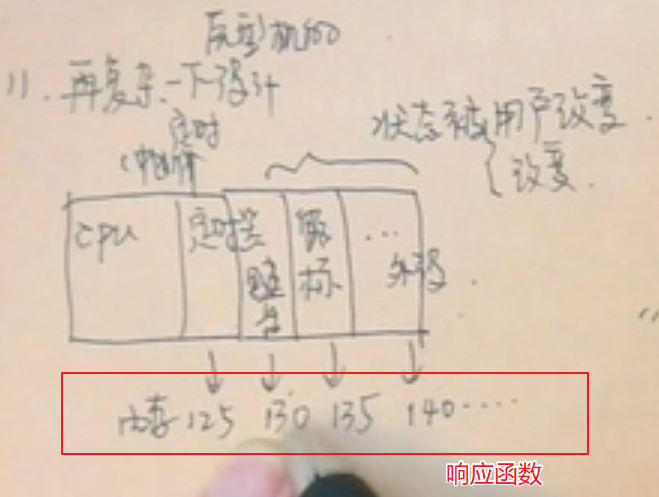 原型机100
11. 再复杂一下设计
定时
中断
状态被用户改变.
改变.
CPU
定时
键盘
鼠标
...
外设.
内存 125 130 135 140 ....
响应函数